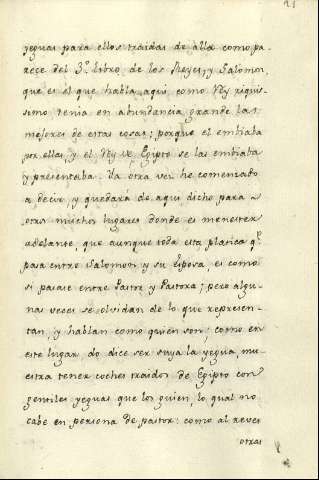 21
yeguas para ellos traidas de alla como pa-
rece del 3º libro de los Reyes, y Salomon,
que es el que habla aqui, como Rey riquis-
simo tenia en abundancia grande las
mejores de estas cosas; porque el embiaba
por ellas, y el Rey de Egipto se las embiaba
y presentaba. Ya otra vez he comenzado
a decir, y quedará de aqui dicho para
otros muchos lugares donde es menester
adelante, que aunque toda esta platica q.e
pasa entre Salomon y su Esposa, es como
si pasase entre Pastor y Pastora; pero algu-
nas veces se olvidan de lo que represen-
tan, y hablan como quien son; como en
este lugar, do dice ser suya la yegua, mu-
estra tener coches traidos de Egipto con
gentiles yeguas que los guien, lo qual no
cabe en persona de pastor: como al reves
otras